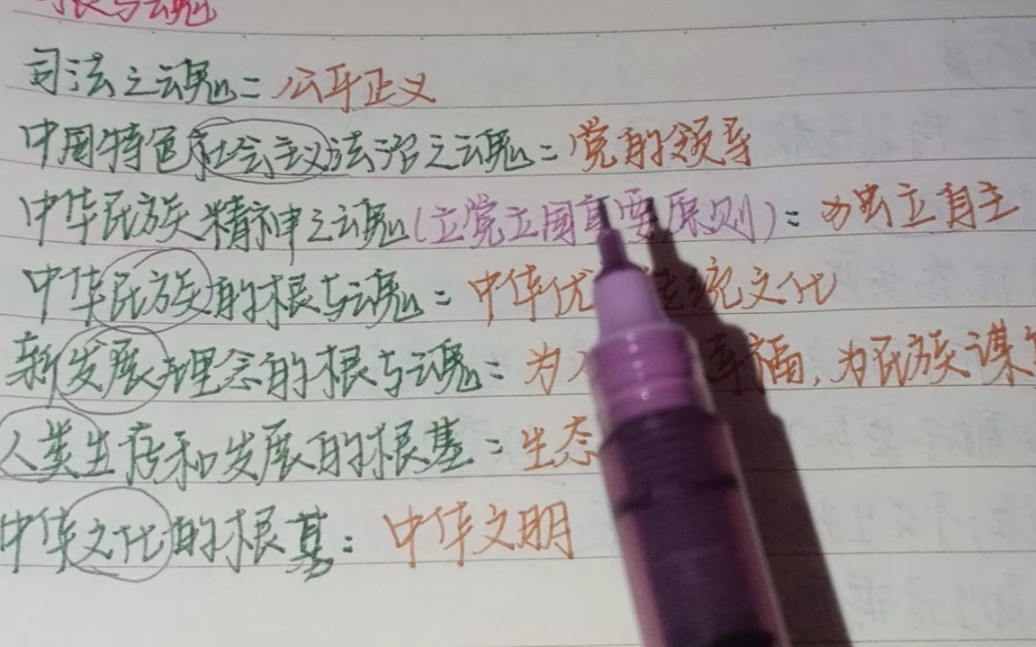 根与魂
司法之魂＝公平正义
中国特色社会主义法治之魂＝党的领导
中华民族精神之魂(立党立国重要原则)：独立自主
中华民族的根与魂＝中华优 统文化
新发展理念的根与魂：为人 福,为民族谋
人类生存和发展的根基：生态
中华文化的根基：中华文明